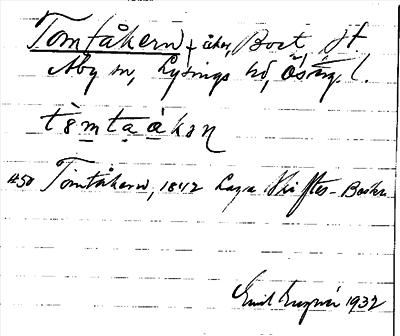 Tomtåkern, åker, Bost, Jt.
Åby sn, Lysings hd, Ösærg. l.
tomtaåkən
450 Tomtåkern, 1842 Laga Skiftes-Beskr.
Emil 1932